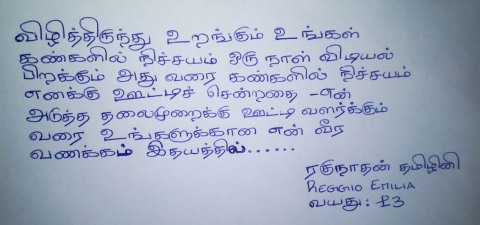 விழித்திருந்து உறங்கும் உங்கள்
கண்களில் நிச்சயம் ஒரு நாள் விடியல்
பிறக்கும் அது வரை கண்களில் நிச்சயம்
எனக்கு ஊட்டிச் சென்றதை -என்
அடுத்த தலைமுறைக்கு ஊட்டி வளர்க்கும்
வரை உங்களுக்கான என் வீர
வணக்கம் இதயத்தில்......
ரகுநாதன் தமிழினி
REGGIO EMILIA
வயது: 23